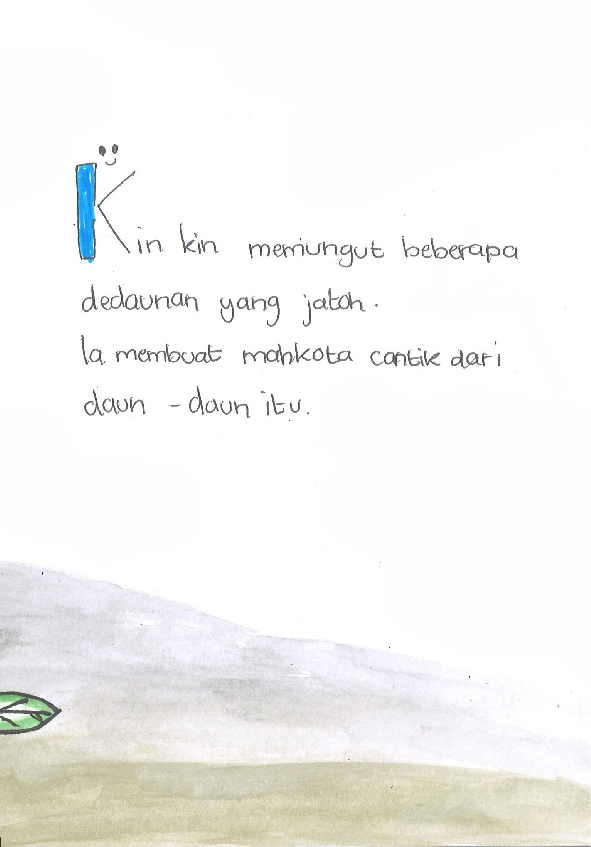 Kin kin memungut beberapa
dedaunan yang jatoh.
Ia membuat mahkota cantik dari
daun - daun itu.